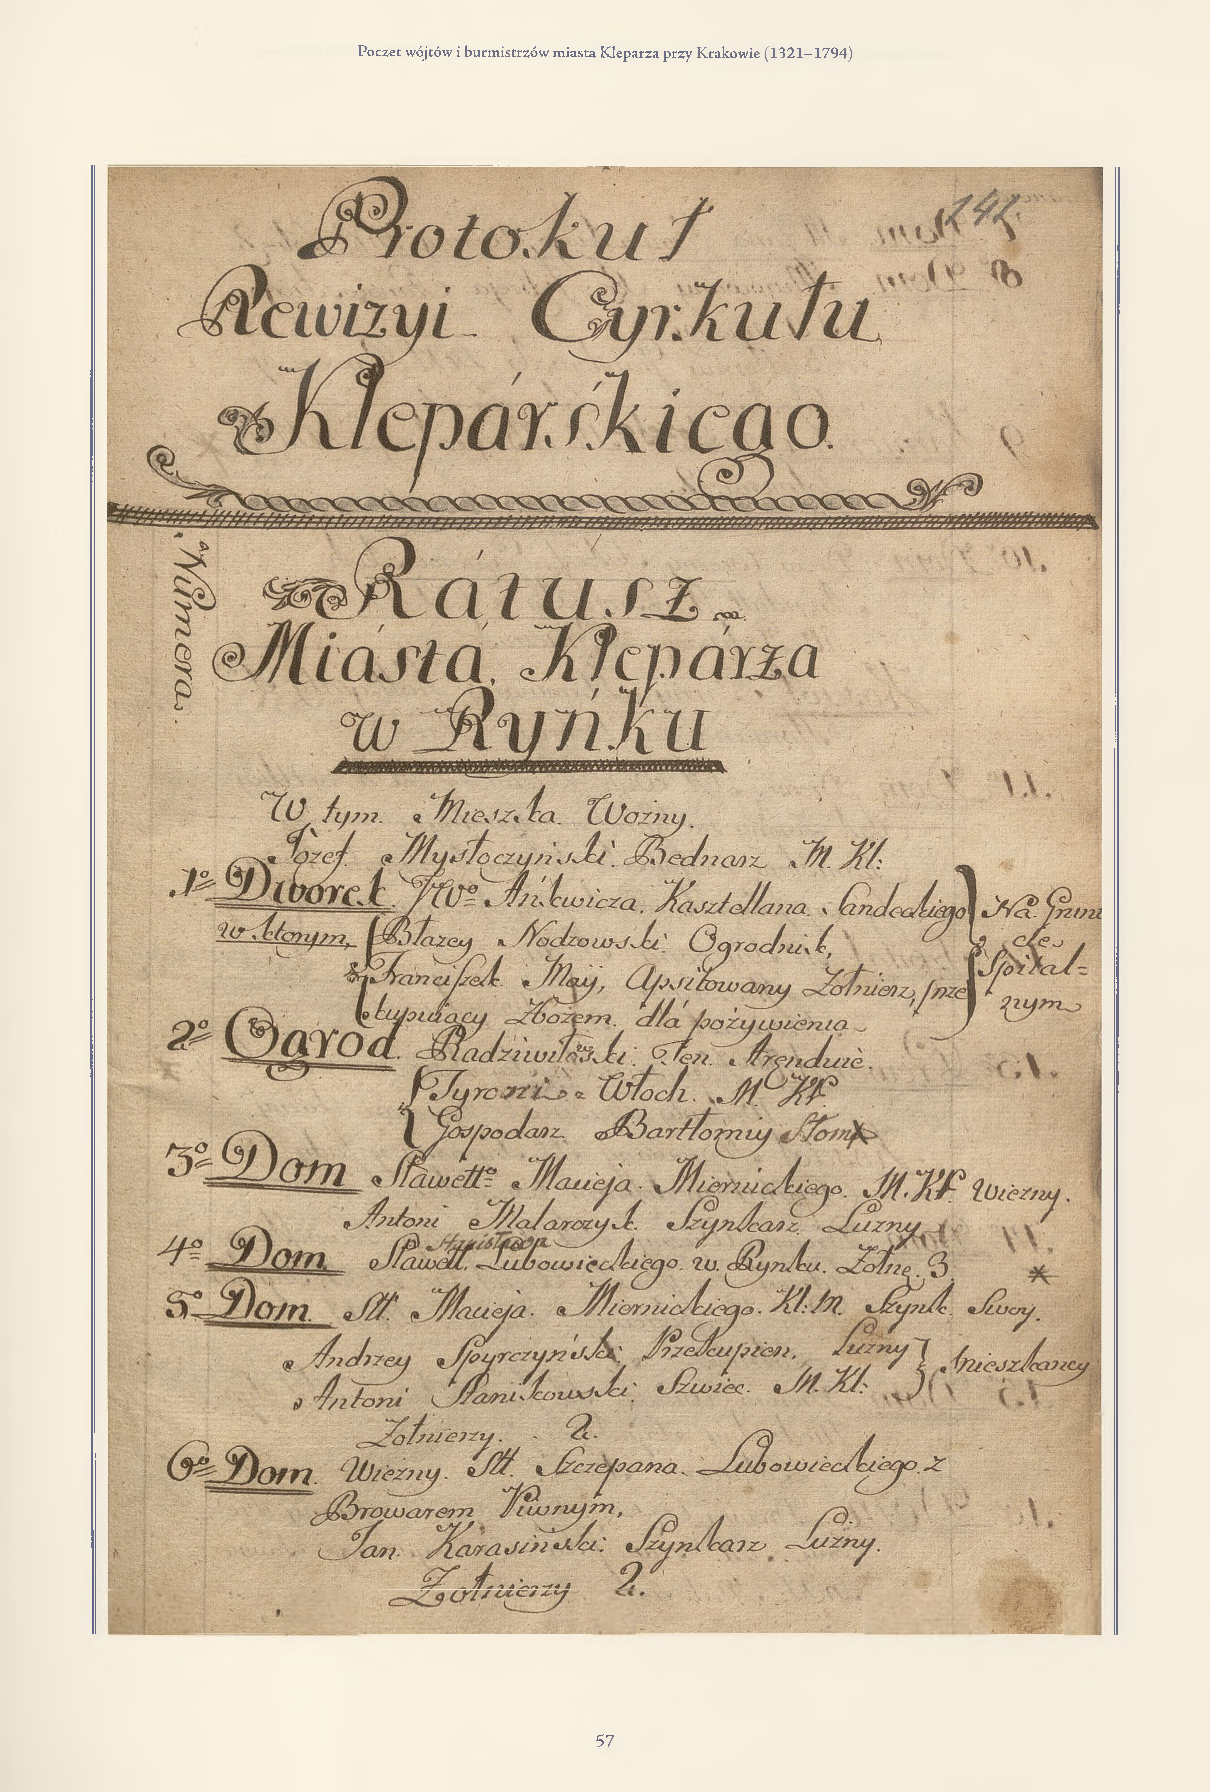 Poczet wójtów i burmistrzów miasta Kleparza przy Krakowie (1321–1794)
242.
Protokuł
Rewizyi Cyrkułu
Klepárśkiego.
Numera.
Rátusz
Miástá, Klepárza
w Ryńku
W tym Mieszka Woźny.
Józef Mysłoczyński Bednarz M. Kl:
1º Dworek JWº Ánkwicza, Kasztellana Sandeckiego Na Grun
w ktorym, Błazey Nodzowski Ogrodnik, de
Franciszek Maij, Apsitowany Żołnierz, prze Szpital=
kupuiący Zbożem dla pożywienia nym
2º Ogrod Radziwiłowski Ten Arenduie.
Tyroni Włoch M. Kł.
Gospodarz Bartłomiy Słom
3º Dom Sławettº Macieja Miernickiego. M. Kł. Wiezny.
Antoni Malarczyk Szynkarz Luzny
4º Dom Sławett. Lubowieckiego w Rynku. Żołnę. 3 *
5º Dom. Słł. Macieja. Miernickiego. Kl: M. Szynk. Swoy.
Andrzey Spyrczyński Przekupien, Luzny mieszkancy
Antoni Stanikowski Szwiec. M. Kl:
Żołnierzy 2.
6º Dom. Wiezny. Słł. Szczepana Lubowieckiego z
Browarem Piwnym,
Jan Karasinski Szynkarz Luzny.
Żołnierzy 2.
57